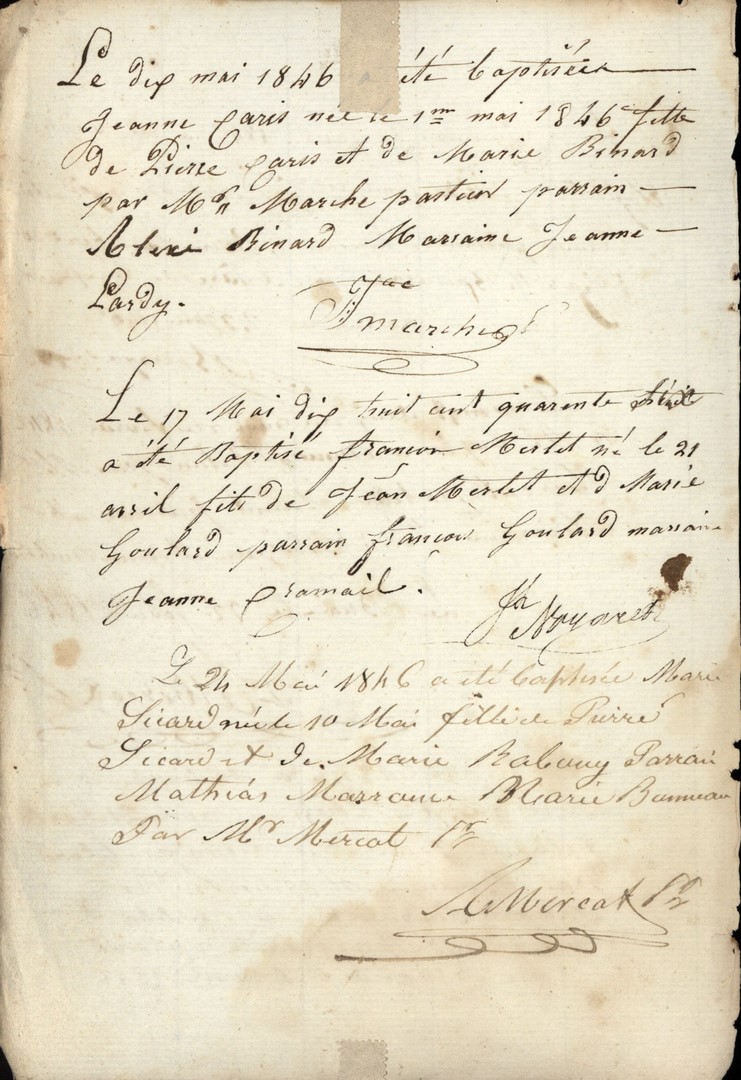 Le dix mai 1846 a été baptisée
Jeanne Paris née le 1er mai 1846 fille
de Pierre Paris et de Marie Binard
par Mr Marche pasteur parrain
Alexi Binard Marraine Jeanne
Pardy.
marche
Le 17 Mai dix huit cent quarente
a été Baptisé françoi Merlet né le 21
avril fils de Jean Merlet et d Marie
Goulard parrain françoi Goulard marraine
Jeanne
Noyaret
Le 24 Mai 1846 a été baptisée Marie
Sicard née le 10 Mai fille de Pierre
Sicard et de Marie Rabouy Parrain
Mathias Marraine Marie Bunneau
Par Mr Mercat Pr
Mercat Pr